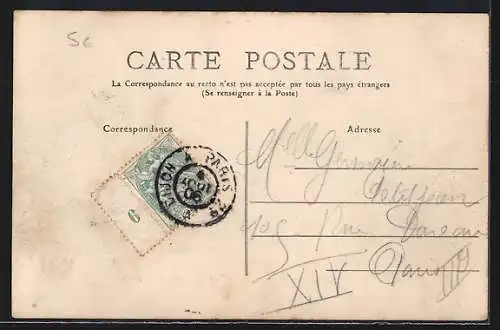 5c
CARTE POSTALE
La Correspondance au recto n'est pas acceptée par tous les pays étrangers
(Se renseigner à la Poste)
Correspondance
Adresse
PARIS
6
Melle Germaine
Rue Dareau
Paris
XIV